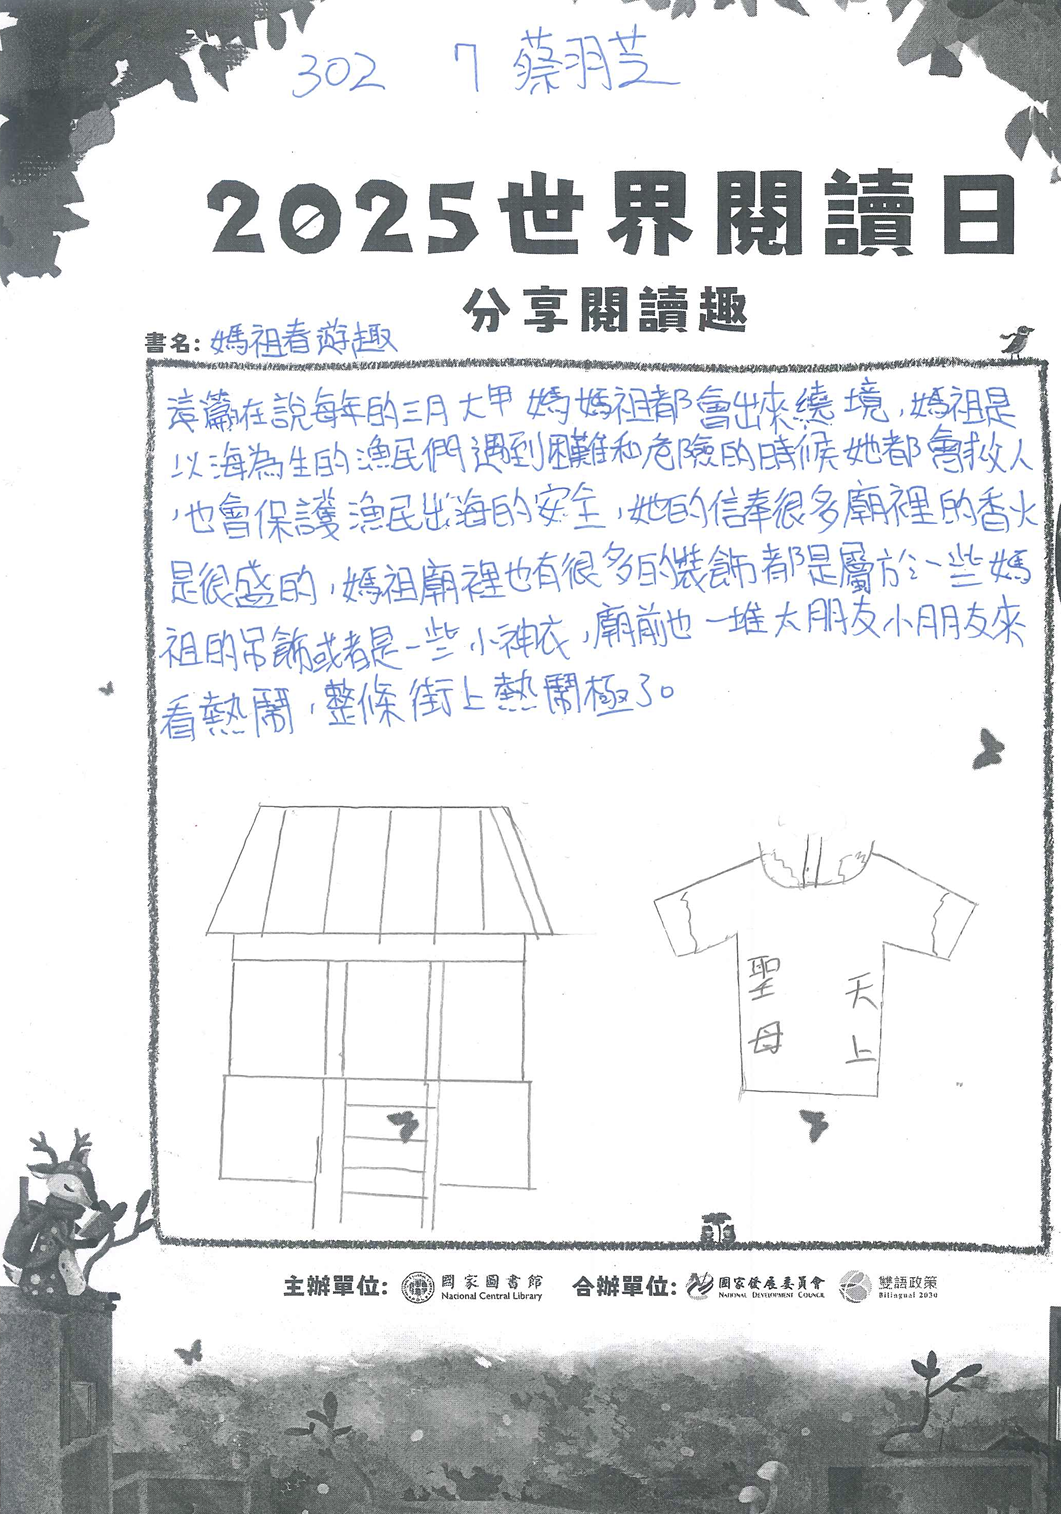 302 7 蔡羽芝
2025世界閱讀日
分享閱讀趣
書名: 媽祖春遊趣
這篇在說每年的三月大甲媽媽祖都會出來繞境,媽祖是
以海為生的漁民們遇到困難和危險的時候她都會救人
,也會保護漁民出海的安全,她的信奉很多廟裡的香火
是很盛的,媽祖廟裡也有很多的裝飾都是屬於一些媽
祖的吊飾或者是一些小神衣,廟前也一堆大朋友小朋友來
看熱鬧,整條街上熱鬧極了。
聖母
天上
主辦單位: 國家圖書館 National Central Library 合辦單位: 國家發展委員會 National Development Council 雙語政策 Bilingual 2030